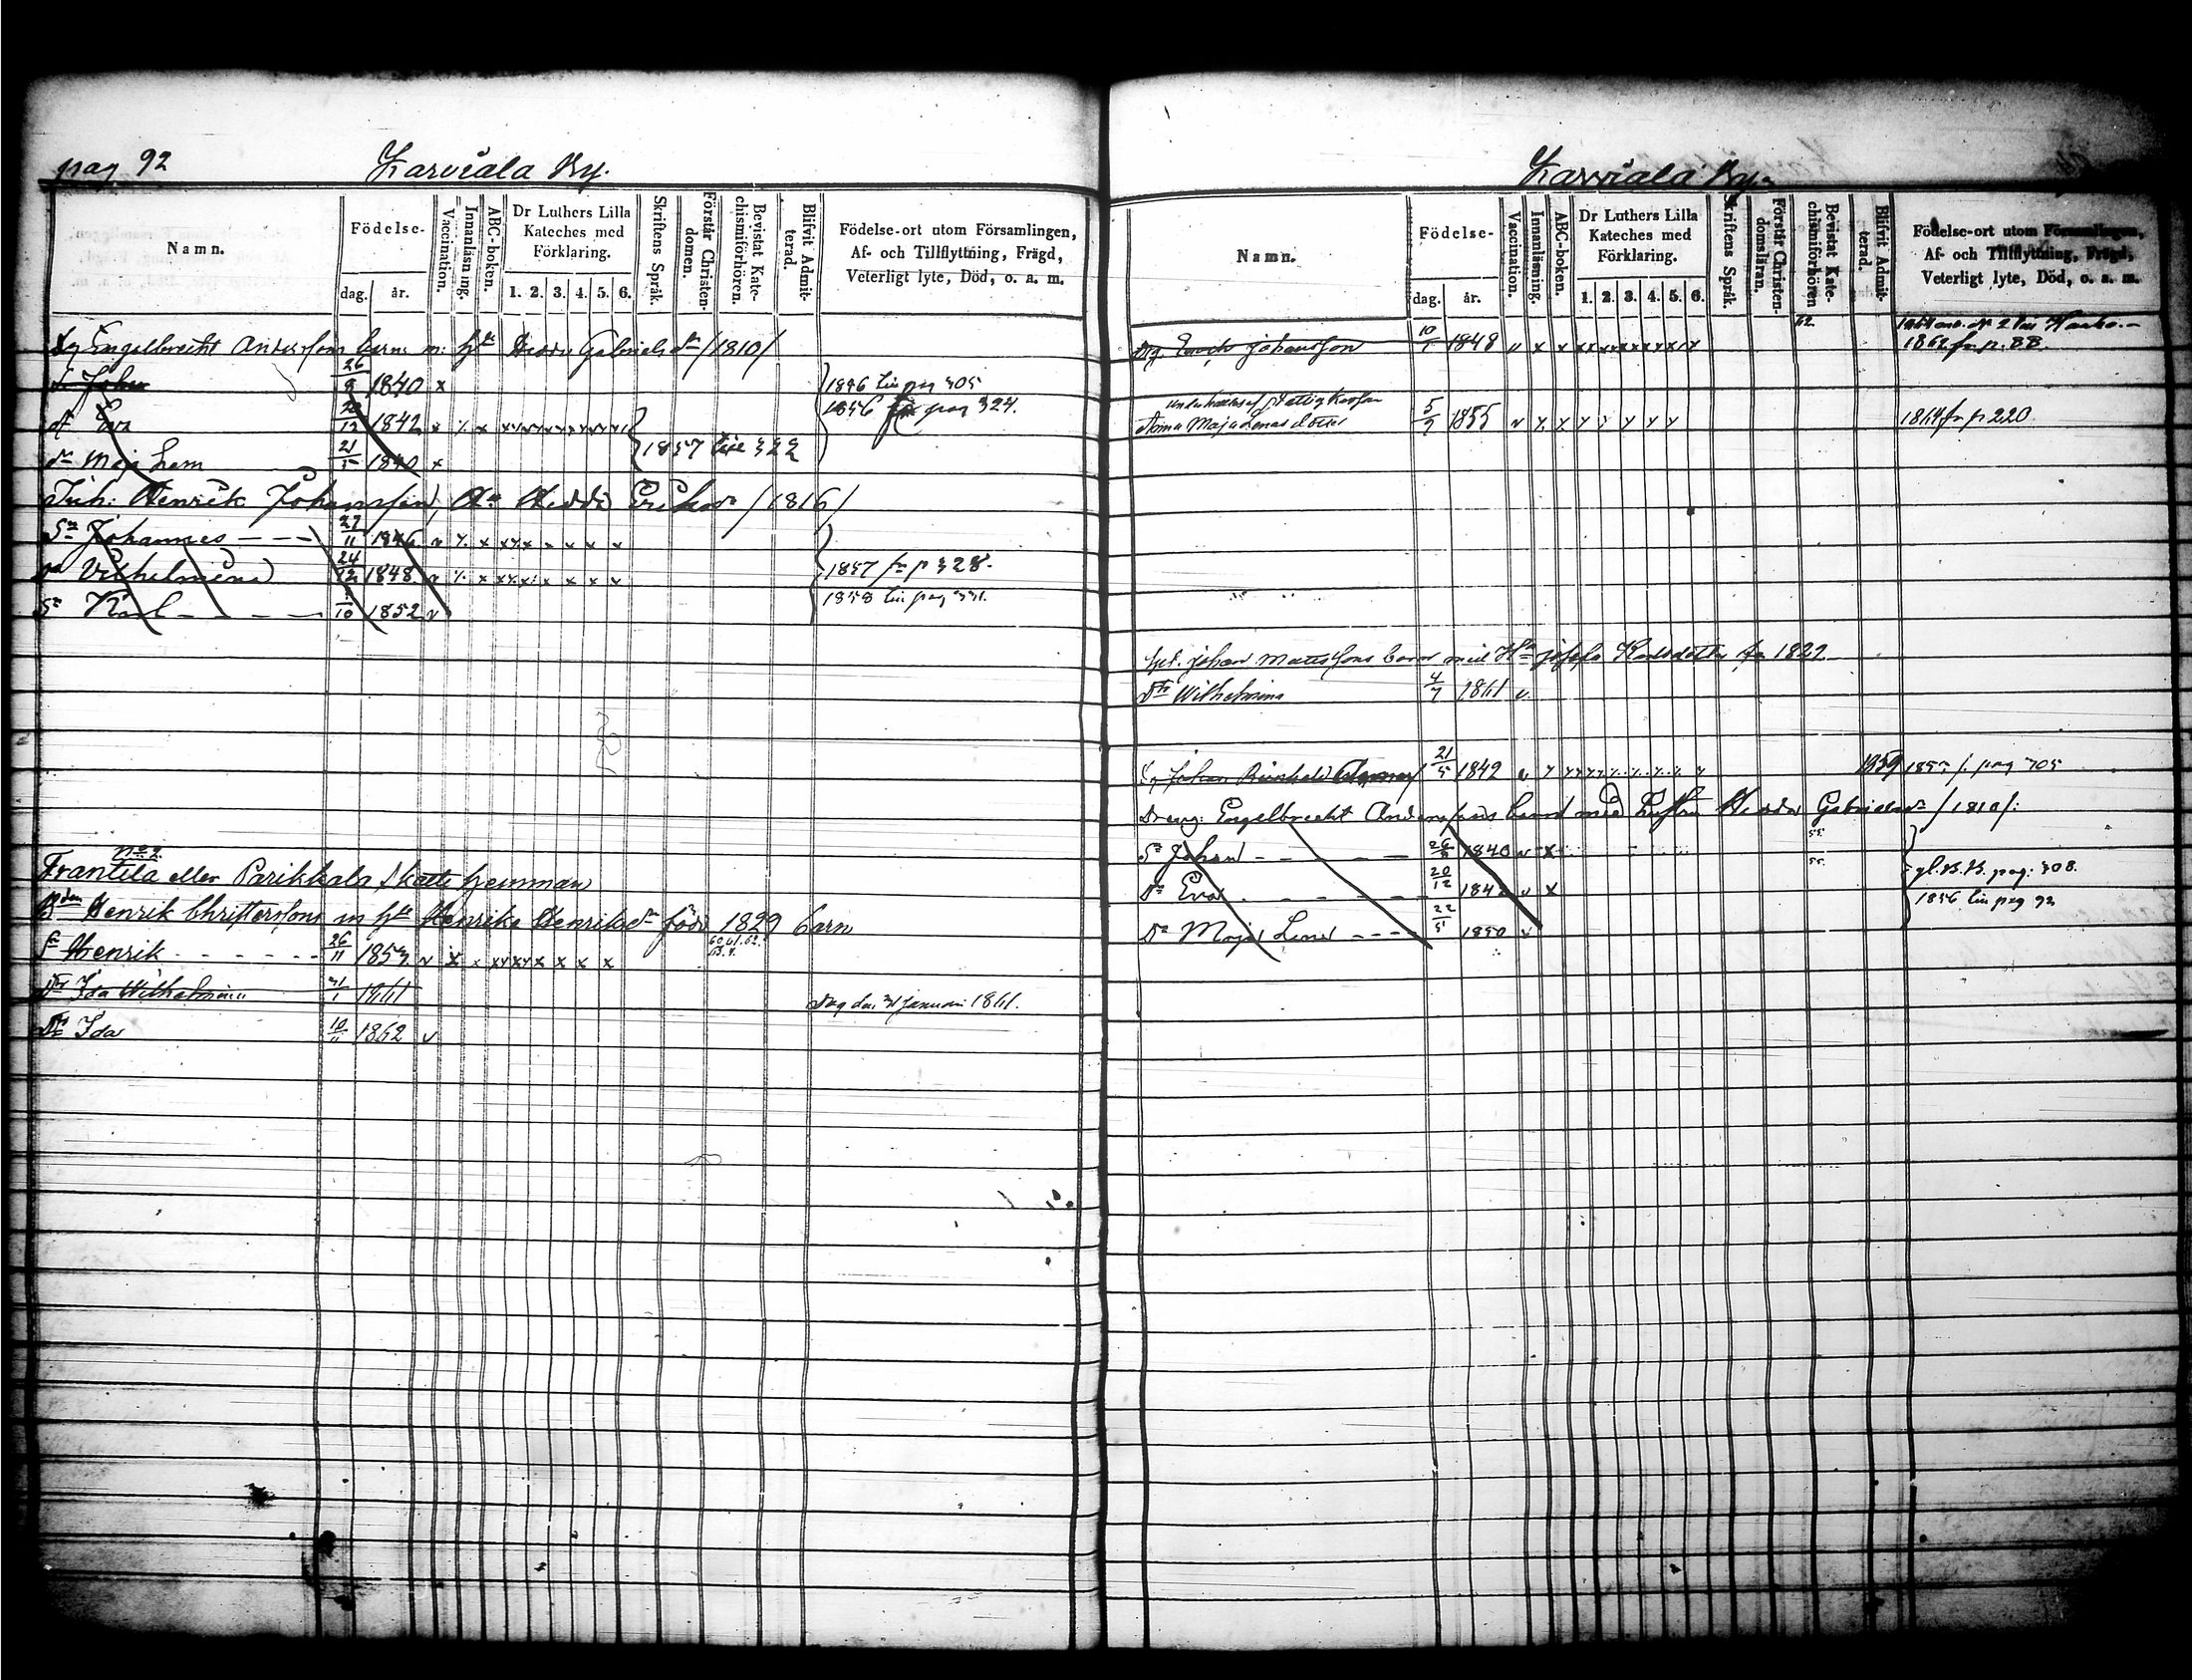 pag 92
Karviala By.
Namn.
Födelse-
dag. år.
Vaccination.
Innanläsning.
ABC-boken.
Dr Luthers Lilla
Kateches med
Förklaring.
1. 2. 3. 4. 5. 6.
Skriftens Språk.
Förstår Christen-
domen.
Bevistat Kate-
chismiförhören.
Blifvit Admit-
terad.
Födelse-ort utom Församlingen,
Af- och Tillflyttning, Frägd,
Veterligt lyte, Död, o. a. m.
Engelbrecht Andersson barn m: Hu Hedda Gabrielsdr /1810/
Sn Johan 26/8 1840 x
1856 till pag 305
Dr Eva 20/12 1842 x
1856 fr pag 324.
Dr Maja Lena 21/5 1840 x 1857 till 322
Inh: Henrik Johansson, Hu Hedda Eriksdr /1816/
Sn Johannes 27/11 1846
Dr Vilhelmina 24/12 1848
1857 fr p 328.
Sn Karl /10 1852
1858 till pag 331.
No 2.
Frantila eller Parikkala Skatte hemman
Bden Henrik Christerssons m Hu Henrika Henriksdr född 1829 barn
Sn Henrik 26/11 1853
60. 61. 62.
Dr Ida Wilhelmina 31/1 1861 Dog den 31 januari 1861.
Dr Ida 10/11 1862
Karviala By.
Namn.
Födelse-
dag. år.
Vaccination.
Innanläsning.
ABC-boken.
Dr Luthers Lilla
Kateches med
Förklaring.
1. 2. 3. 4. 5. 6.
Skriftens Språk.
Förstår Christen-
domsläran.
Bevistat Kate-
chismiförhören
Blifvit Admit-
terad.
Födelse-ort utom Församlingen,
Af- och Tillflyttning, Frägd,
Veterligt lyte, Död, o. a. m.
Drg. Johansson 10/1 1848
62
1862 fr p. 88.
Anna Maja Lenasdotter 5/9 1855 1861 fr p 220.
Johan Mattssons barn med Hu Josefa Karlsdotter fr 1822
Dr Wilhelmina 4/7 1861
Johan 21/5 1842 1859 pag 305
Dreng: Engelbrecht Anderssons barn med hustru Hedda Gabrielsdr /1810/:
Sn Johan 26/8 1840
55
Dr Eva 20/12 1842
55
gl. K.B. pag: 308.
1856 till pag 92
Dr Maja Lena 22/5 1850